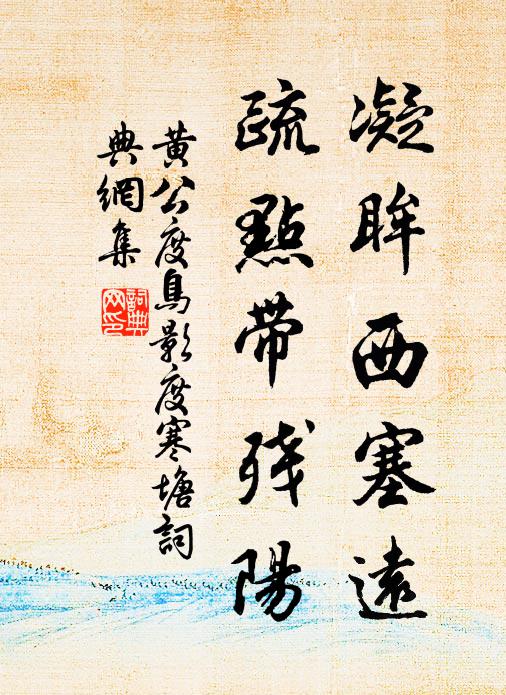 凝眸西塞遠
疏點帶残陽
黄公度鳥影度寒塘詞
典網集
詞典
网印